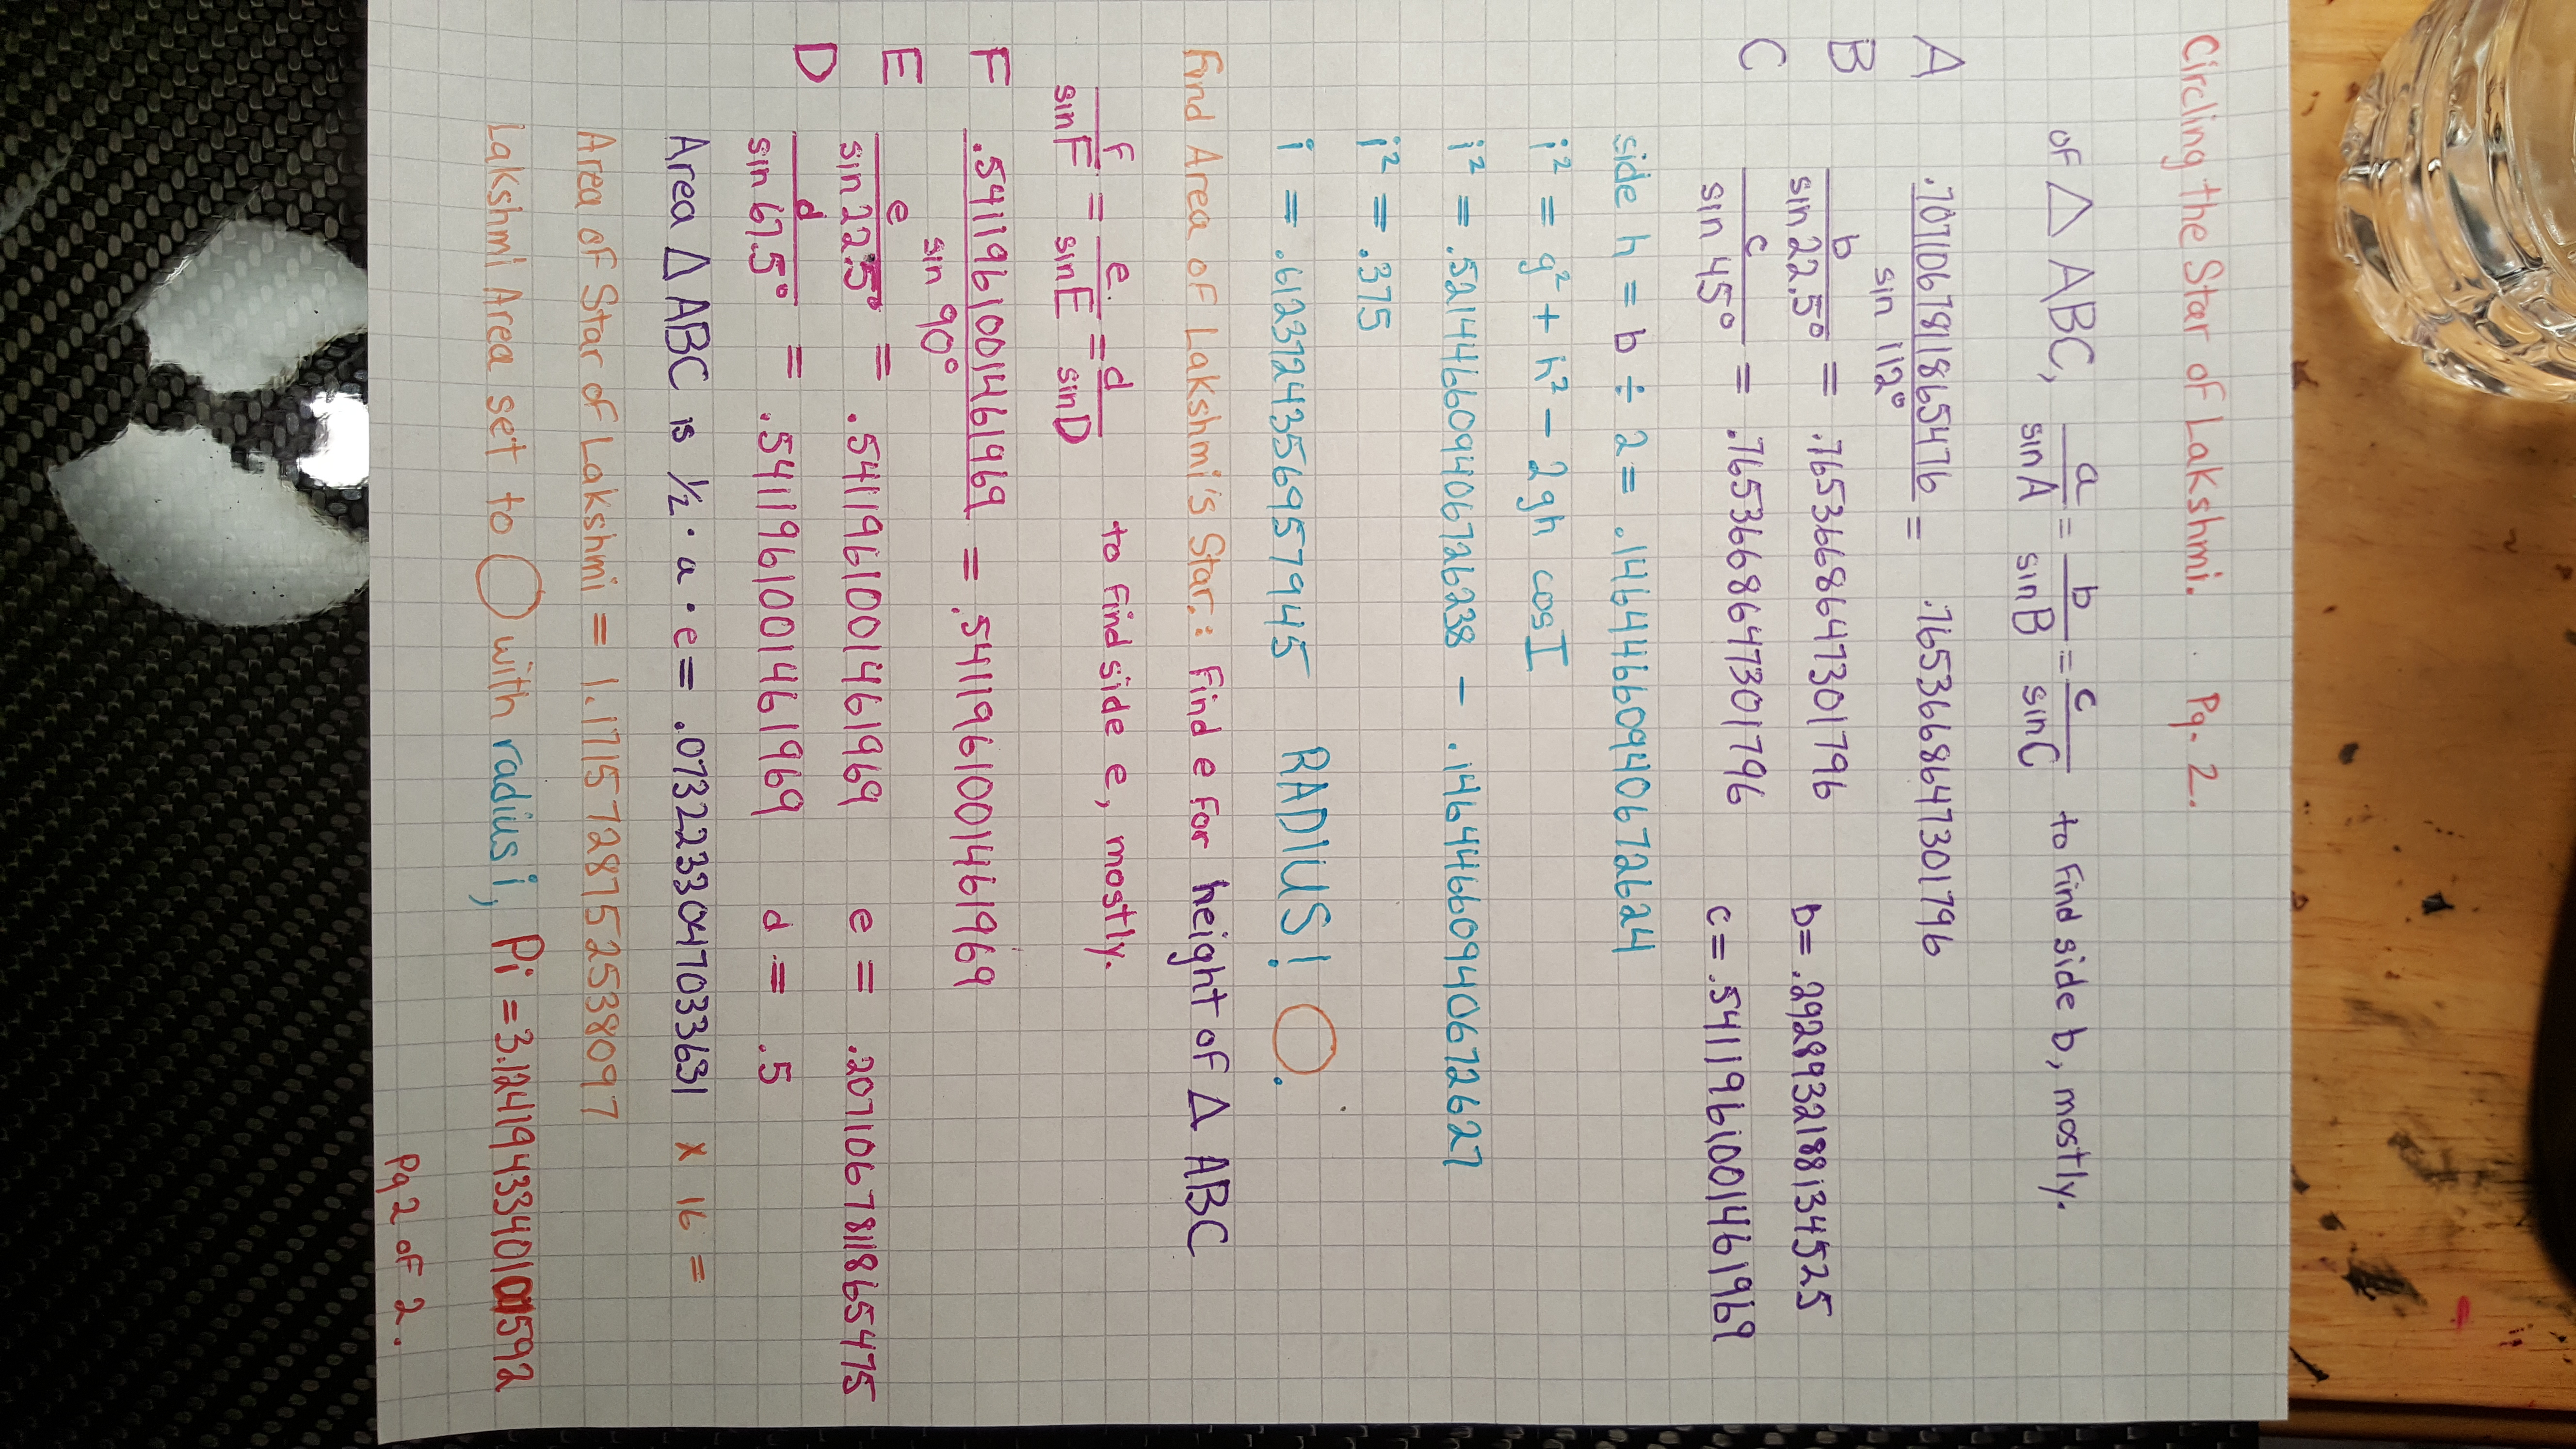 Circling the Star of Lakshmi. Pg. 2.
of △ ABC, a/sin A = b/sin B = c/sin C to find side b, mostly.
A .7071067818654 76/sin 112° = .7653668647301796
B b/sin 22.5° = .7653668647301796 b= .2928932188134525
C c/sin 45° = .7653668647301796 c= .5411961001461969
side h = b ÷ 2 = .1464466094067 2624
i² = g² + h² - 2gh cos I
i² = .5214466094067 26238 - .1464466094067 2627
i² = .375
i = .6123724356957945 RADIUS! ◯.
Find Area of Lakshmi's Star: Find e for height of △ ABC
f/sin F = e/sin E = d/sin D to find side e, mostly.
F .5411961001461969/sin 90° = .5411961001461969
E e/sin 22.5° = .5411961001461969 e = .2071067811865475
D d/sin 67.5° = .5411961001461969 d = .5
Area △ ABC is ½ · a · e = .0732233047033631 x 16 =
Area of Star of Lakshmi = 1.1715728752538097
Lakshmi Area set to ◯ with radius i, Pi = 3.1241943340100 1592
Pg 2 of 2.